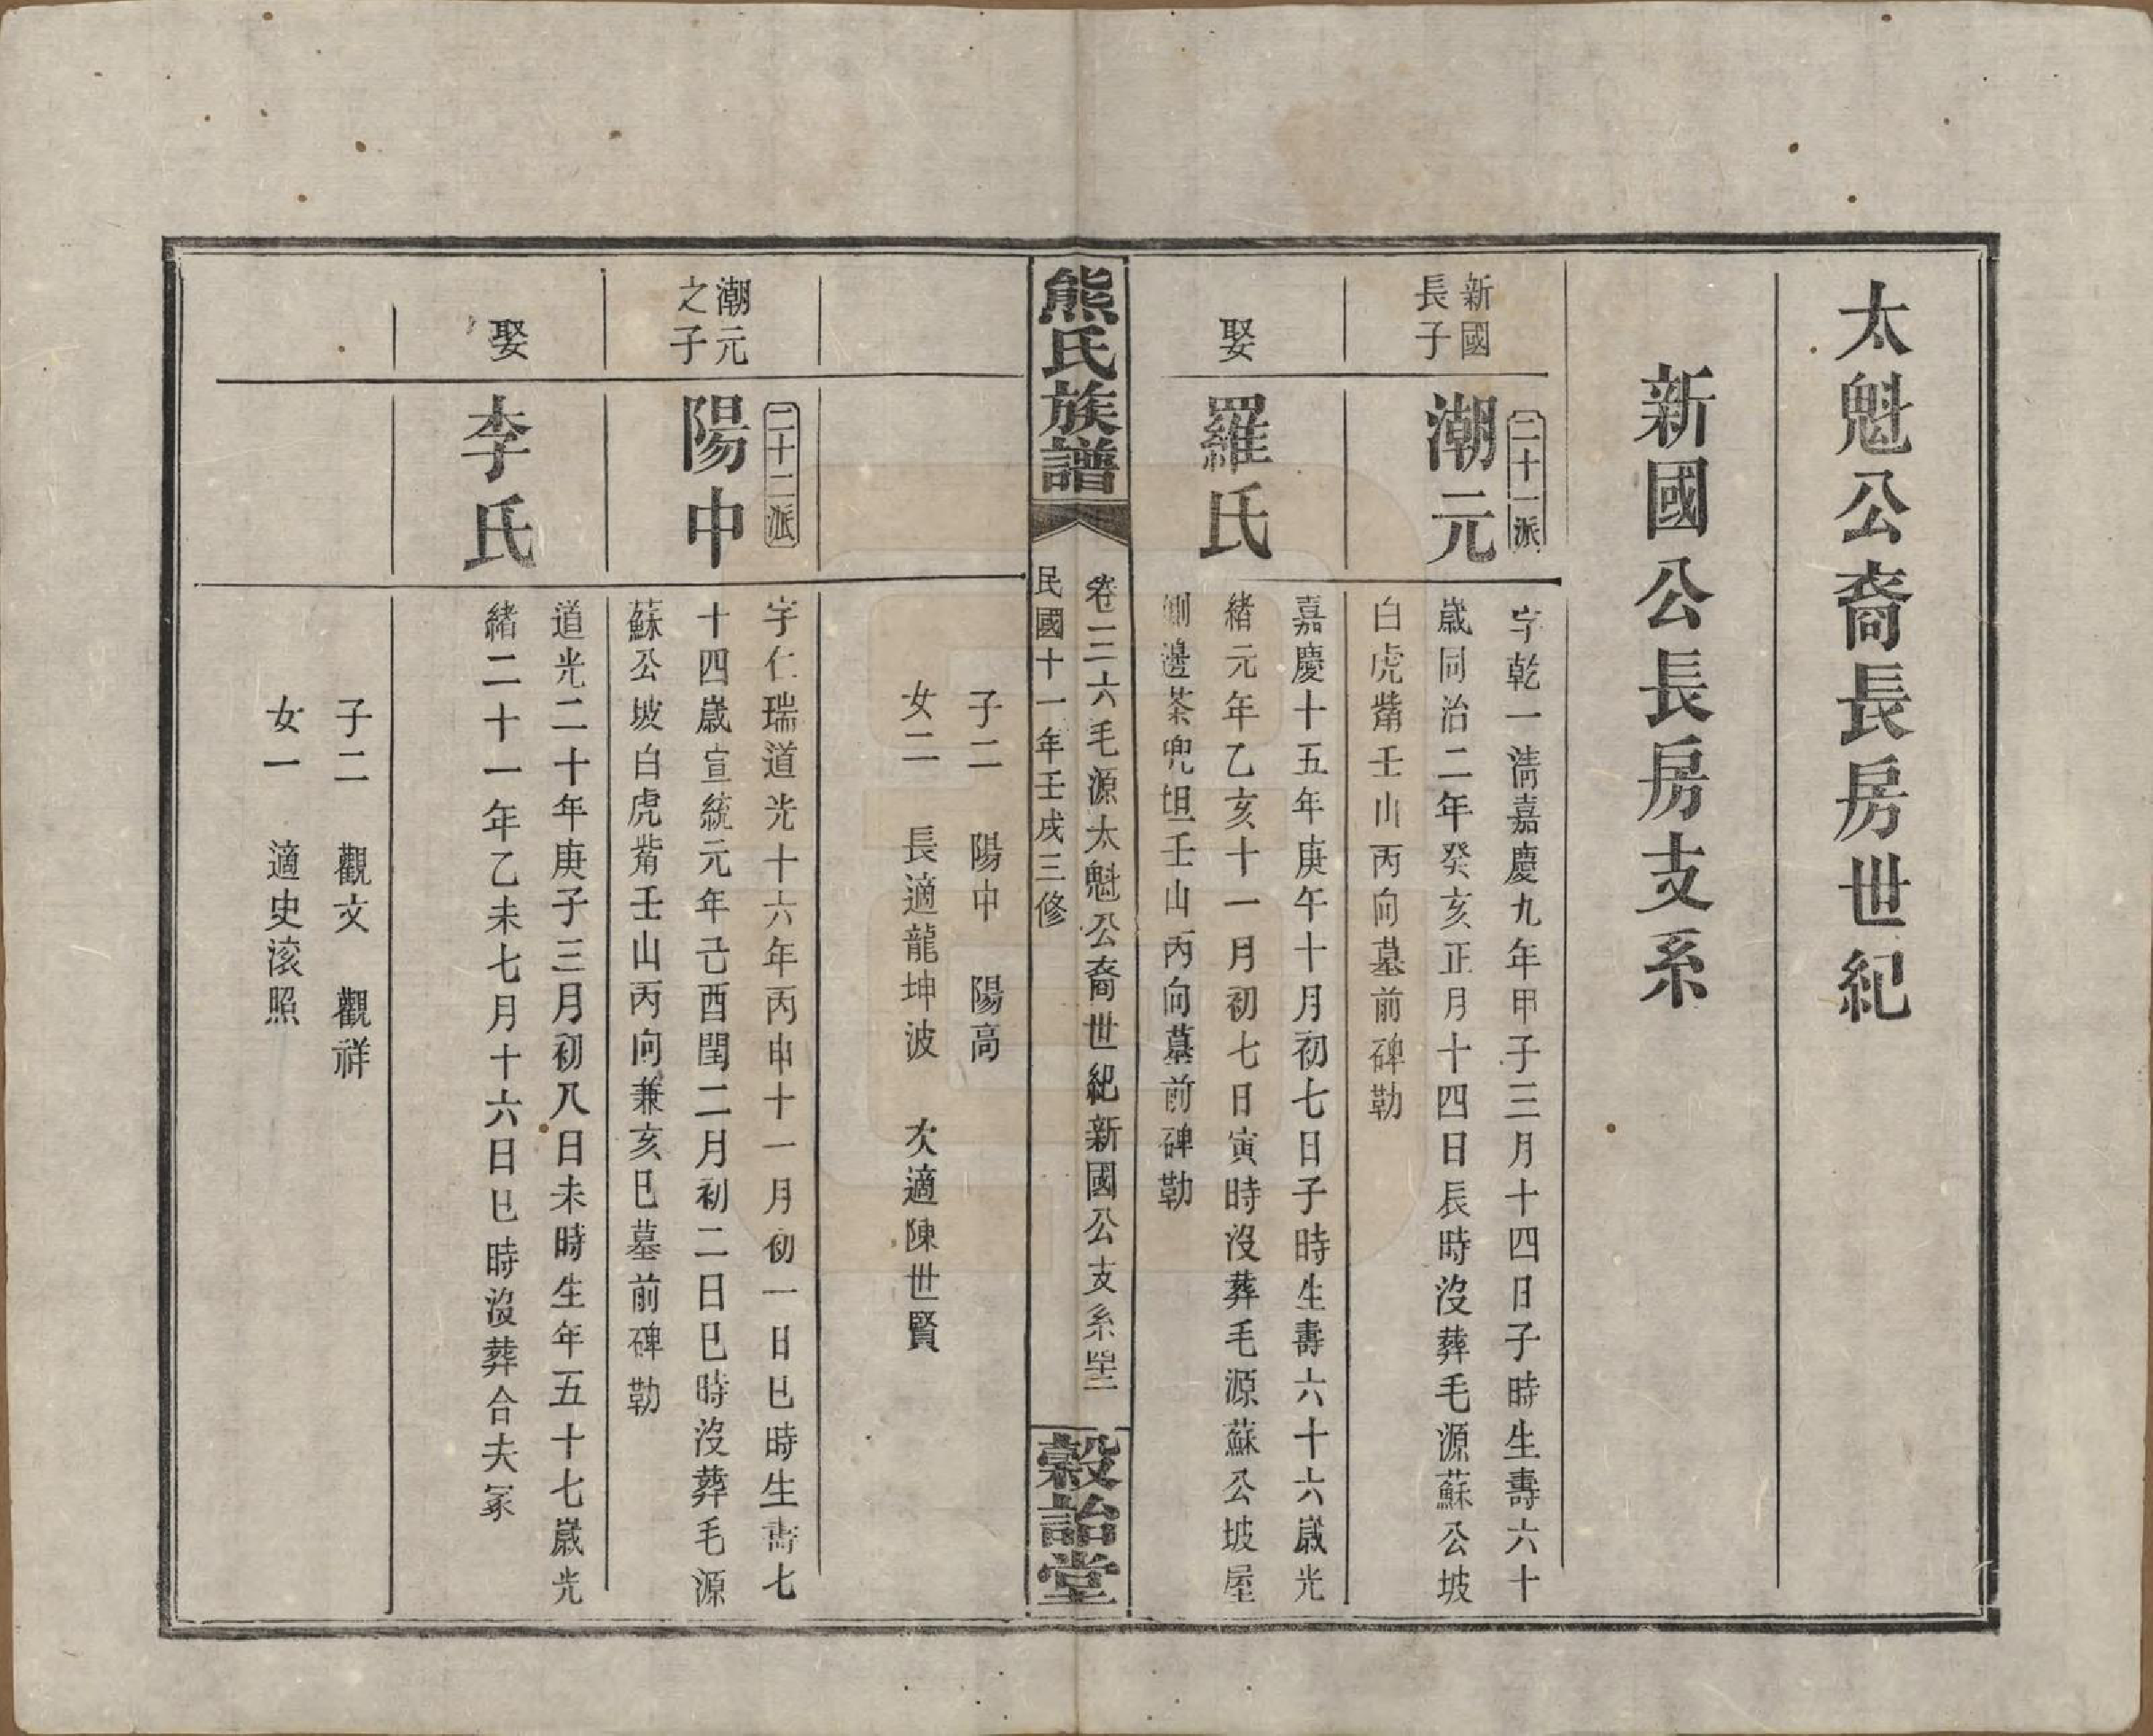 太魁公裔長房世紀
新國公長房支系
新國
長子
二十一派
潮元
字乾一清嘉慶九年甲子三月十四日子時生壽六十
歲同治二年癸亥正月十四日辰時沒葬毛源蘇公坡
白虎觜壬山丙向墓前碑勒
娶
羅氏
嘉慶十五年庚午十月初七日子時生壽六十六歲光
緒元年乙亥十一月初七日寅時沒葬毛源蘇公坡屋
側邊茶兜坦壬山丙向墓前碑勒
熊氏族譜
卷二三六毛源太魁公裔世紀新國公支系
民國十一年壬戌三修
穀詒堂
子二 陽中 陽高
女二 長適龍坤波 次適陳世賢
潮元
之子
二十二派
陽中
字仁瑞道光十六年丙申十一月初一日巳時生壽七
十四歲宣統元年己酉閏二月初二日巳時沒葬毛源
蘇公坡白虎觜壬山丙向兼亥巳墓前碑勒
娶
李氏
道光二十年庚子三月初八日未時生年五十七歲光
緒二十一年乙未七月十六日巳時沒葬合夫冢
子二 觀文 觀祥
女一 適史滚照